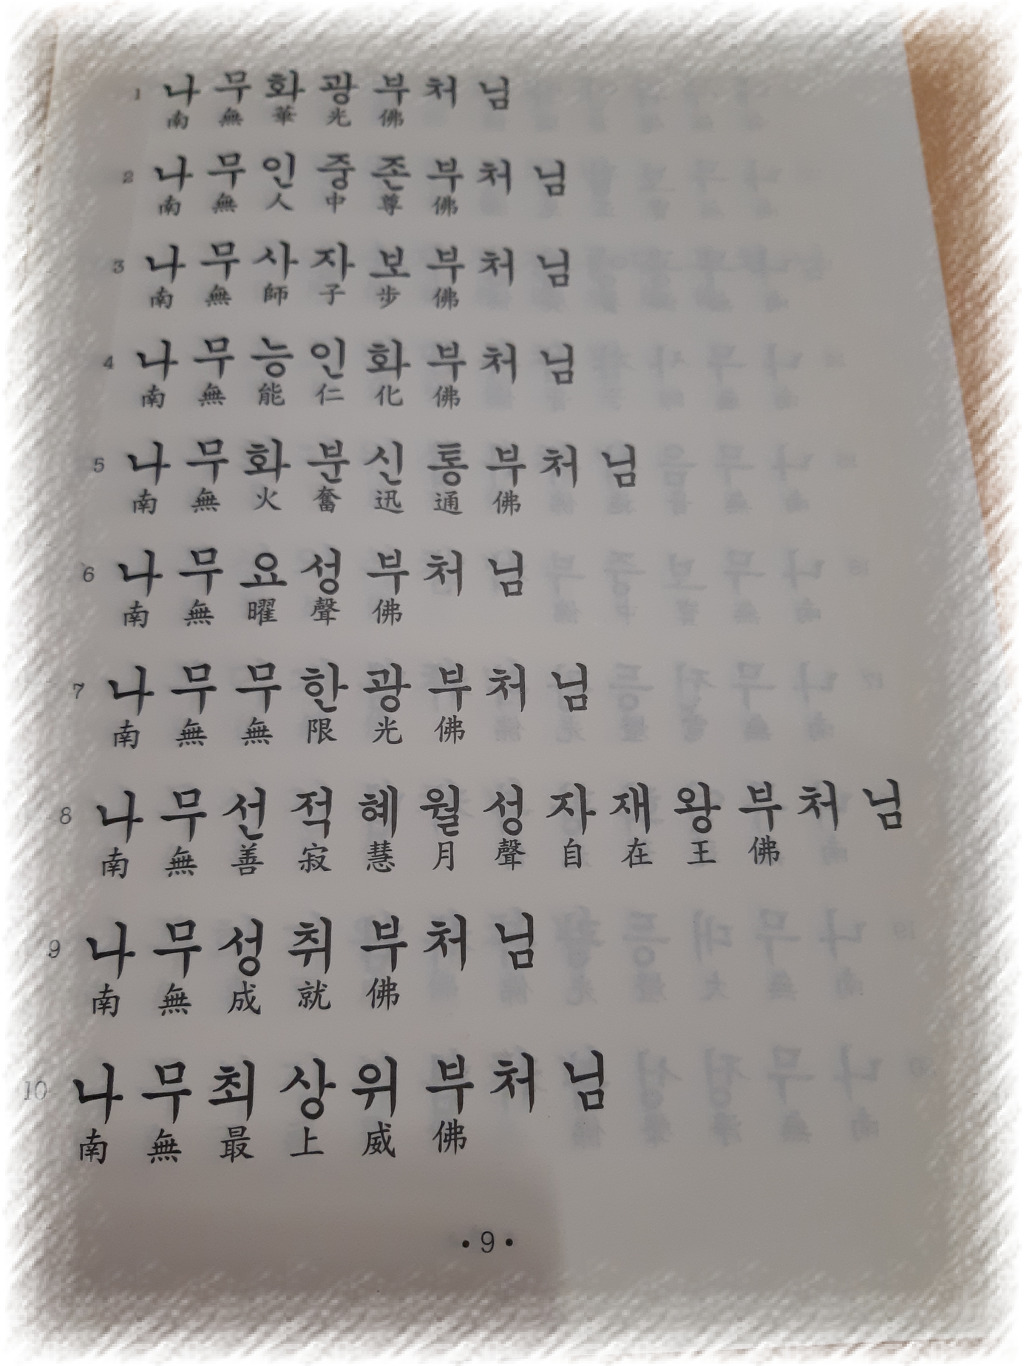 1 나무화광부처님
南無華光佛
2 나무인중존부처님
南無人中尊佛
3 나무사자보부처님
南無師子步佛
4 나무능인화부처님
南無能仁化佛
5 나무화분신통부처님
南無火奮迅通佛
6 나무요성부처님
南無曜聲佛
7 나무무한광부처님
南無無限光佛
8 나무선적혜월성자재왕부처님
南無善寂慧月聲自在王佛
9 나무성취부처님
南無成就佛
10 나무최상위부처님
南無最上威佛
• 9 •